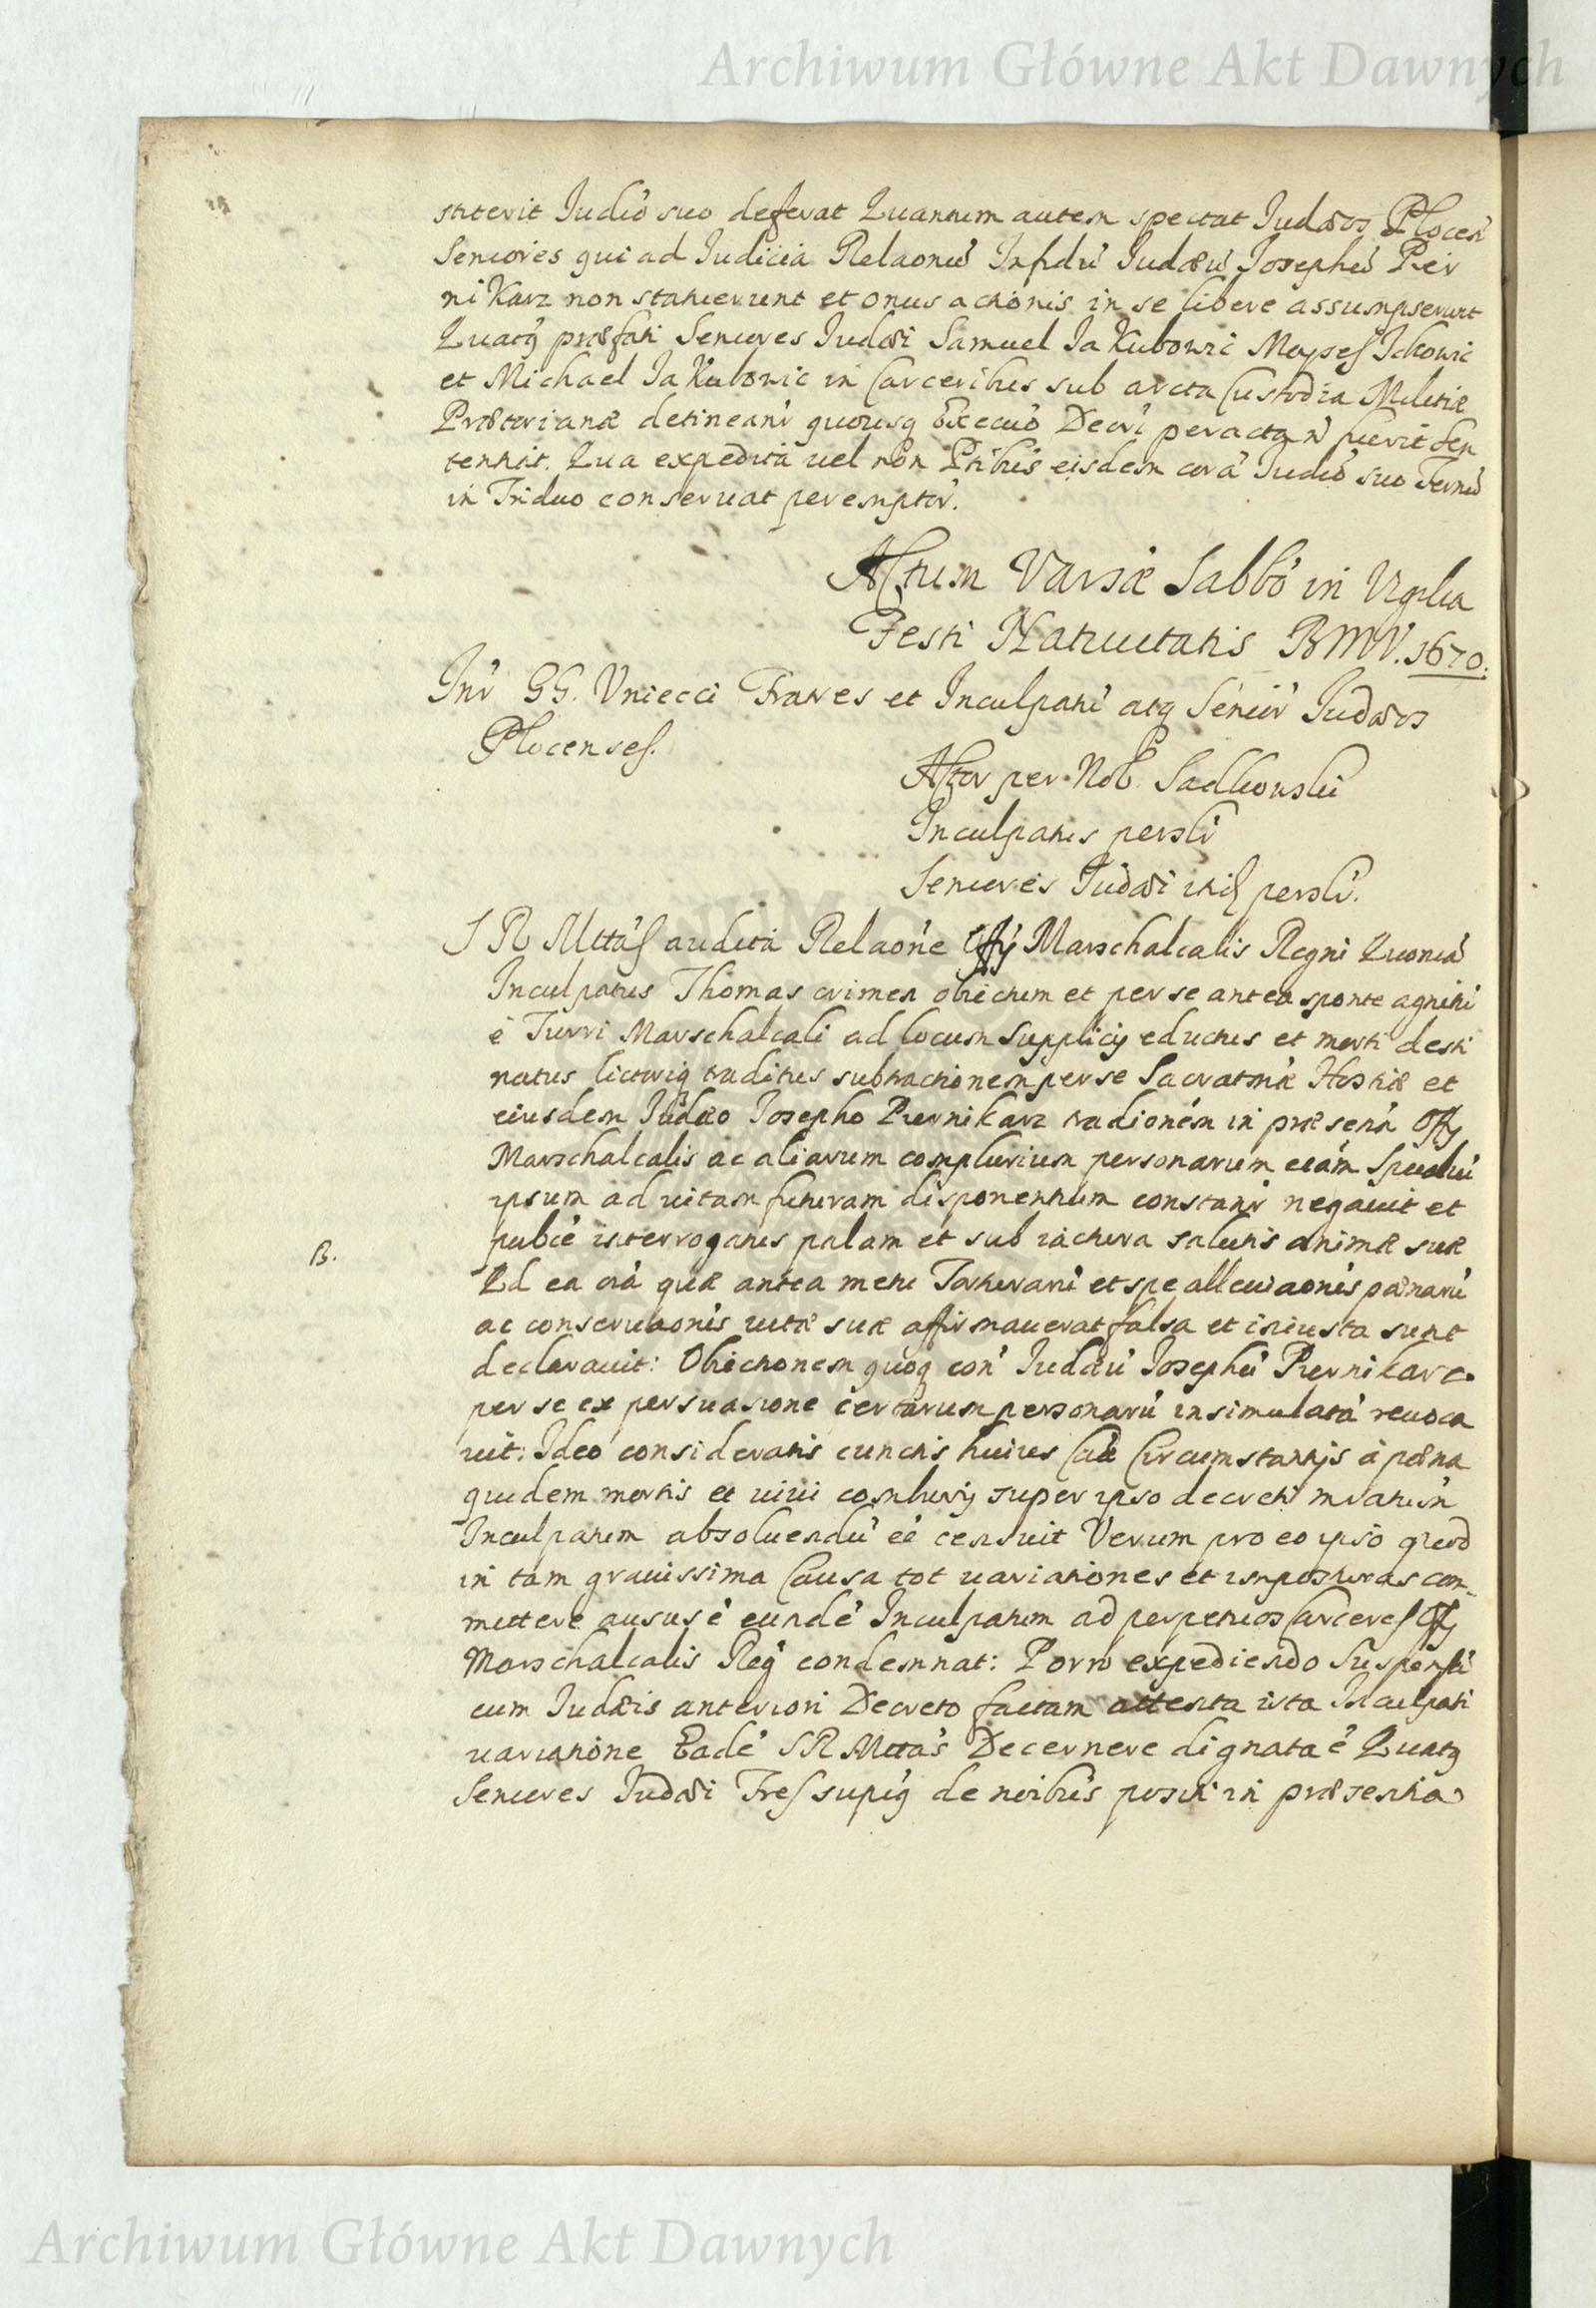 Archiwum Główne Akt Dawnych
stiterit Iudio suo deferat Quantum autem spectat Iudæos Plocen
Seniores qui ad Iudicia Relaonu Infidu Iudæu Josephu Pier
nikarz non statuerunt et onus actionis in se libere assumpserunt
Quatq præfati Seniores Iudæi Samuel Jakubowic Moyses Ickowic
et Michael Jakubowic in Carceribus sub arcta Custodia Militiæ
Prætorianæ detineant quousq Execuo Decri peracta n fuerit Sen
tentiat. Qua expedita uel non Ptibus eisdem cora Iudio suo Termu
in Triduo conseruat peremptor.
Actum Varsiæ Sabbo in Vigilia
Festi Natiuitatis BMV. 1670.
Int GG. Vniecci Fratres et Inculpatu atq Senior Iudæos
Plocenses.
Actor per Nob. Sadkowski
Inculpatus persl
Seniores Iudæi itid persl.
S R Mttas audita Relaone Offy Marschalcalis Regni Quonia
Inculpatus Thomas crimen obiectum et per se antea sponte agniti
è Turri Marschalcali ad locum Supplicij eductus et morti desti
natus lictoriq traditus subtractionem per se Sacratmæ Hostiæ et
eiusdem Iudæo Josepho Piernikarz tradionem in præsena Offy
Marschalcalis ac aliarum complurium personarum eiam Spualiu
ipsum ad uitam futuram disponentium constant negauit et
publce interrogatus palam et sub iactura salutis animæ suæ
B.
Qd ea oia quæ antea metu Torturaru et spe alleuiaonis pænaru
ac conseruaonis uitæ suæ affirmauerat falsa et iniusta sunt
declarauit: Obiectionem quoq con Iudæu Josephu Piernikarz
per se ex persuasione certarum personaru insimulata reuoca
uit: Ideo consideratis cunctis huius Cae Circumstantijs à pæna
quidem mortis et uiui comburij super ipso decreti mratum
Inculpatum absoluendu ee censuit Verum pro eo ipso quod
in tam grauissima Causa tot uariationes et imposturas com-
mittere ausus è eunde Inculpatum ad perpetuos Carceres Offy
Marschalcalis Reg condemnat: Porro expediendo Suspensi
cum Iudæis anteriori Decreto factam attenta ista Inculpati
uariatione Eade SR Mttas Decernere dignata è Quatq
Seniores Iudæi Tres supiq de noibus positi in præsentia
Archiwum Główne Akt Dawnych